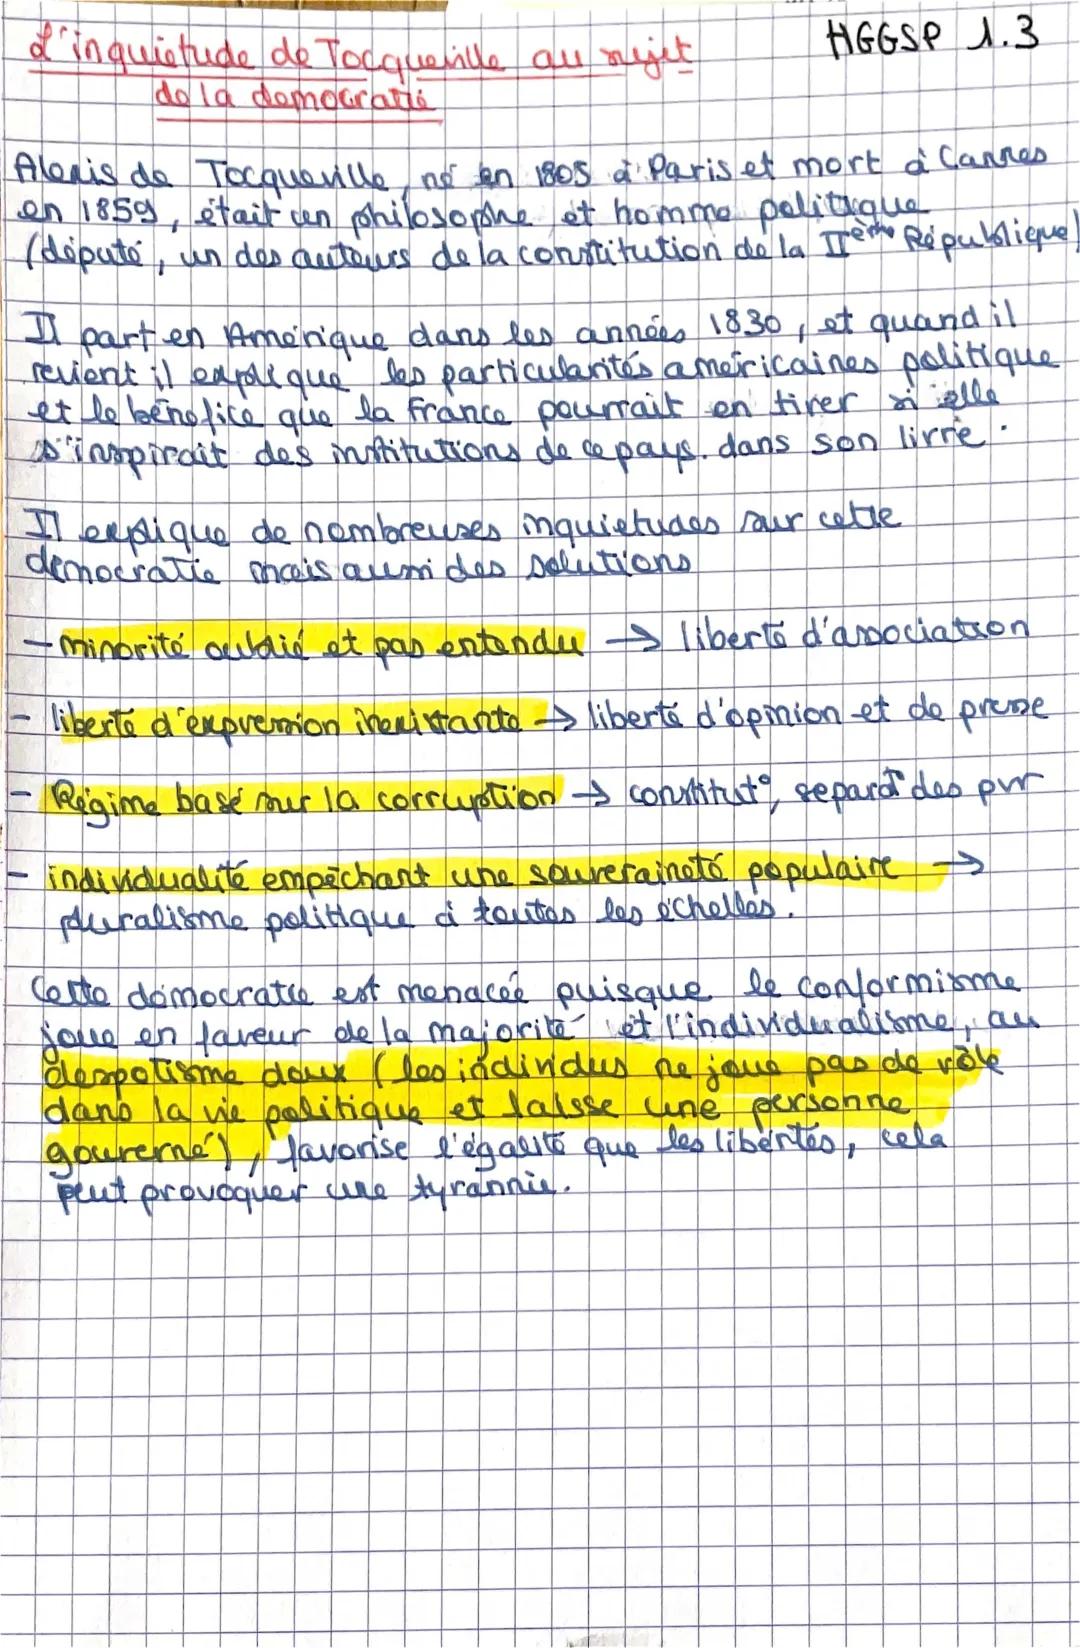 HGGSP 1.3
L'inquiétude de Tocqueville au sujet
de la democratie
Alexis de Tocqueville, né en 1805 à Paris et mort à Cannes
en 1859, était un philosophe et homme politique
(député, un des auteurs de la constitution de la IIème République)
Il part en Amérique dans les années 1830, et quand il
revient il explique les particularités américaines politique
et le bénéfice que la France pourrait en tirer si elle
s'inspirait des institutions de ce pays. dans son livre.
Il explique de nombreuses inquietudes sur cette
democratie mais aussi des solutions
- minorité oublié et pas entendu → liberté d'association
- liberté d'expression inexistante → liberté d'opinion et de presse
- Régime basé sur la corruption → constitut°, separat° des pvr
- individualité empêchant une souveraineté populaire →
pluralisme politique à toutes les échelles.
Cette démocratie est menacée puisque le conformisme
joue en faveur de la majorité et l'individualisme, au
despotisme doux (les individus ne joue pas de rôle
dans la vie politique et laisse une personne
gouverné), favorise l'égalité que les libertés, cela
peut provoquer une tyrannie.